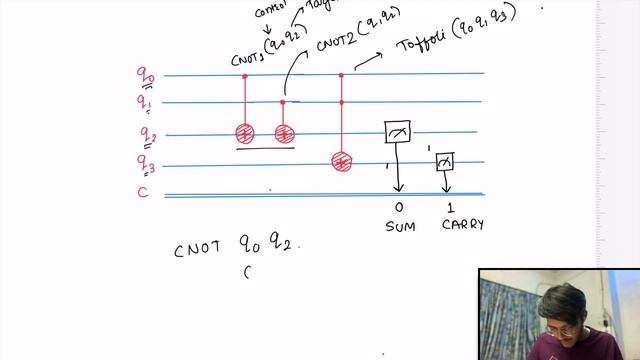 control Target
CNOT1 (q0 q2)
CNOT2 (q1 q2)
Toffoli (q0 q1 q3)
q0
q1
q2
q3
C
0 1
SUM CARRY
CNOT q0 q2.
C